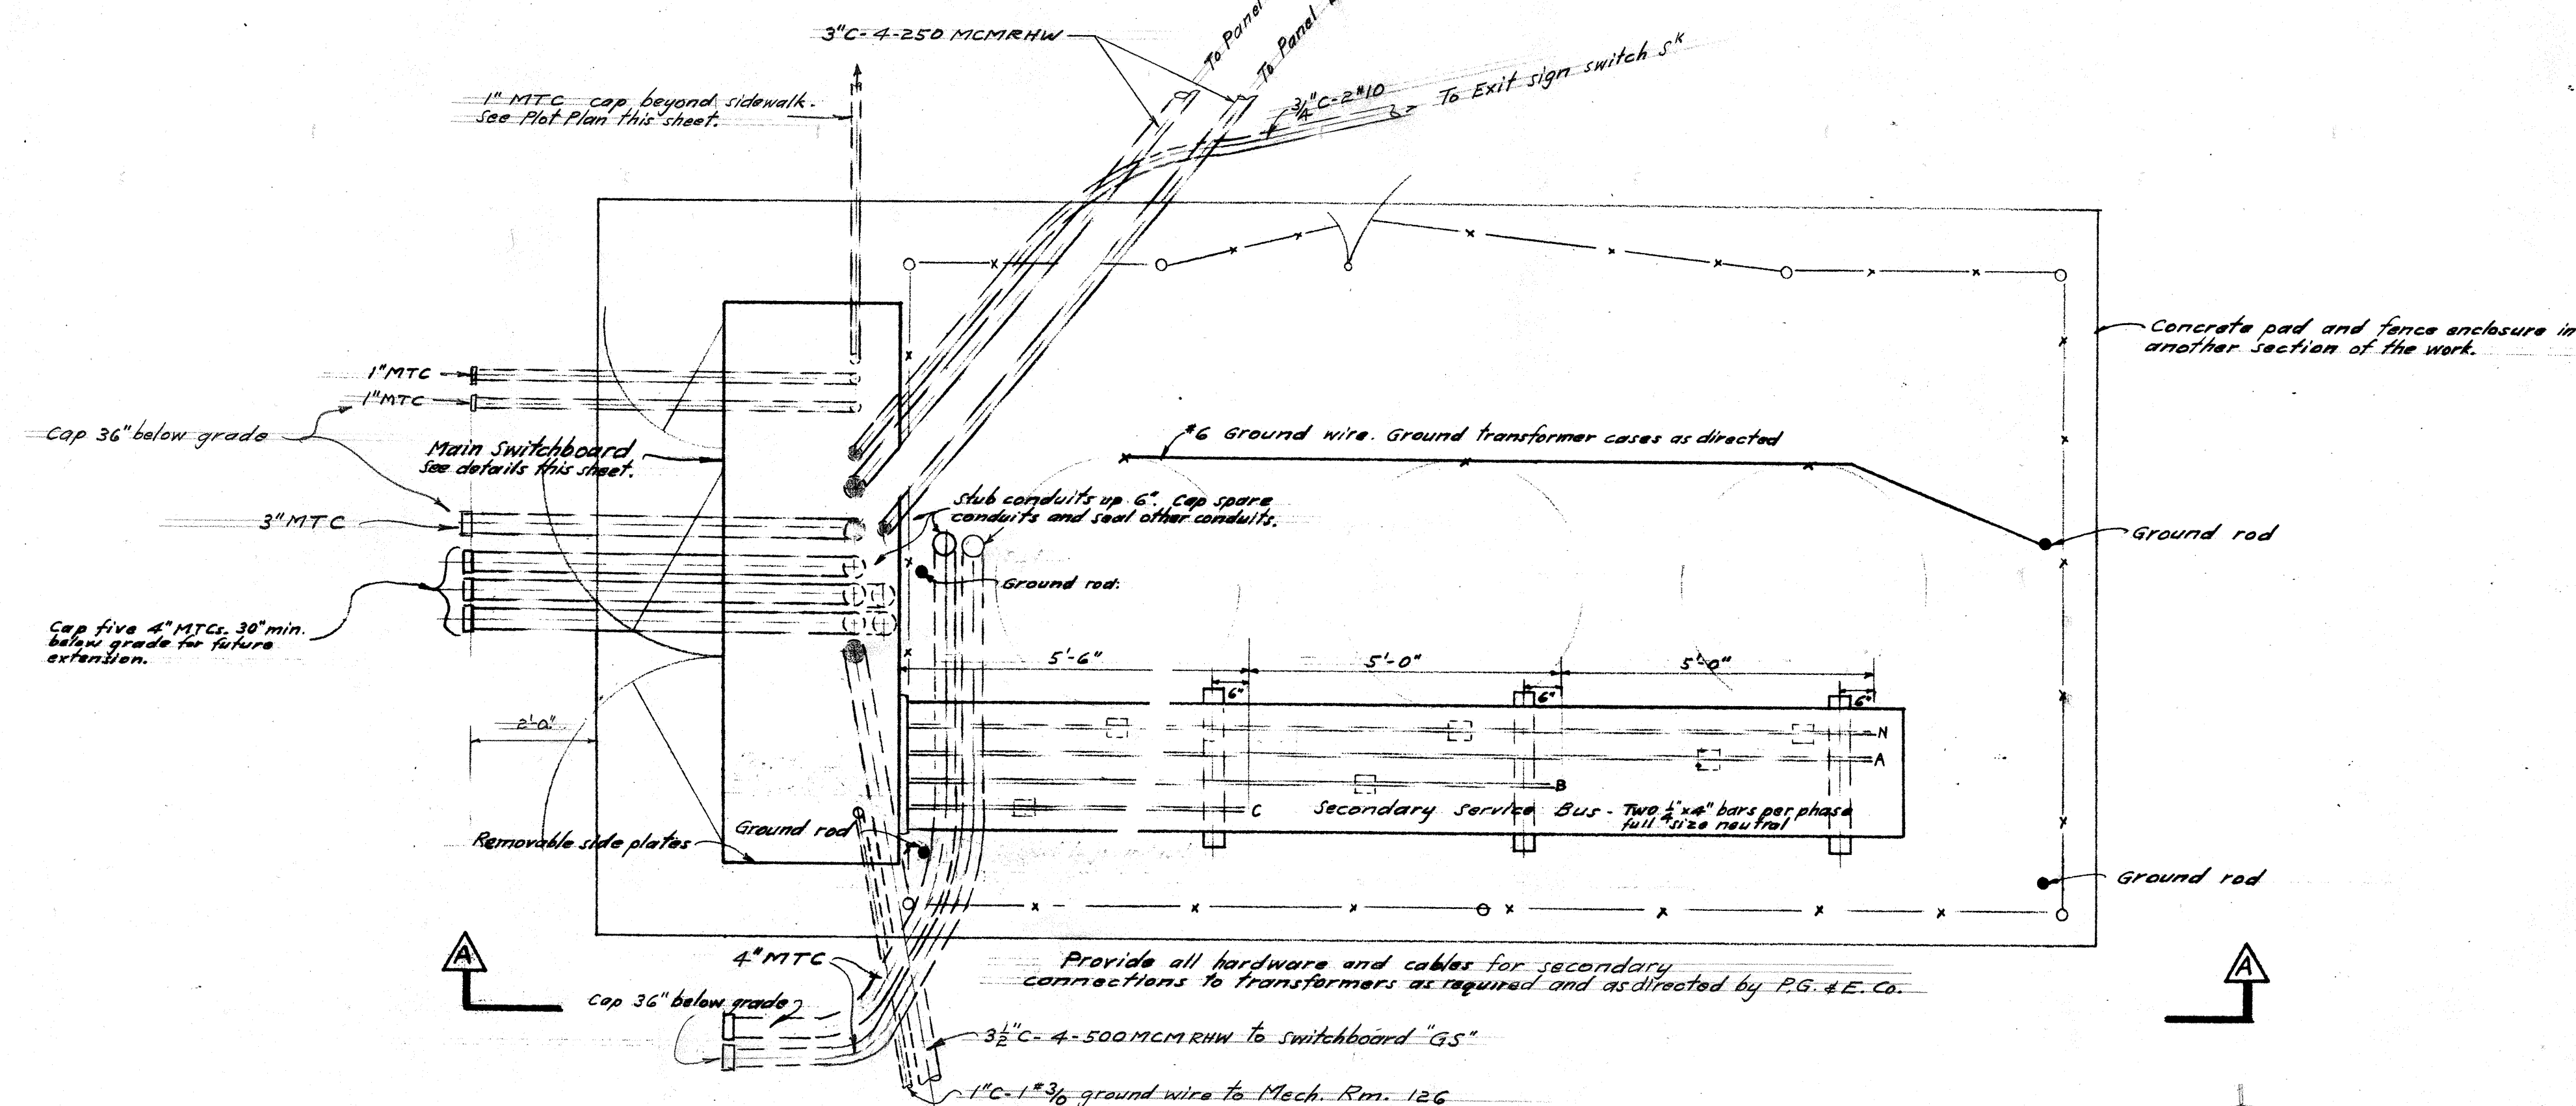 3"C-4-250 MCMRHW
To Panel
To Panel
3/4"C-2#10
To Exit sign switch Sᴷ
1" MTC cap beyond sidewalk.
See Plot Plan this sheet.
Concrete pad and fence enclosure in
another section of the work.
1"MTC
1"MTC
Cap 36" below grade
Main Switchboard
See details this sheet.
#6 Ground wire. Ground transformer cases as directed
3"MTC
Stub conduits up 6". Cap spare
conduits and seal other conduits.
Ground rod
Ground rod.
Cap five 4" MTCs. 30" min.
below grade for future
extension.
5'-6"
5'-0"
5'-0"
6"
6"
6"
2'-0"
N
A
B
C
Secondary Service Bus - Two 1/4"x4" bars per phase
full size neutral
Ground rod
Removable side plates
Ground rod
A
A
4" MTC
Provide all hardware and cables for secondary
connections to transformers as required and as directed by P.G. & E. Co.
Cap 36" below grade
3½"C-4-500 MCM RHW to Switchboard "GS"
1"C-1#3/0 ground wire to Mech. Rm. 126